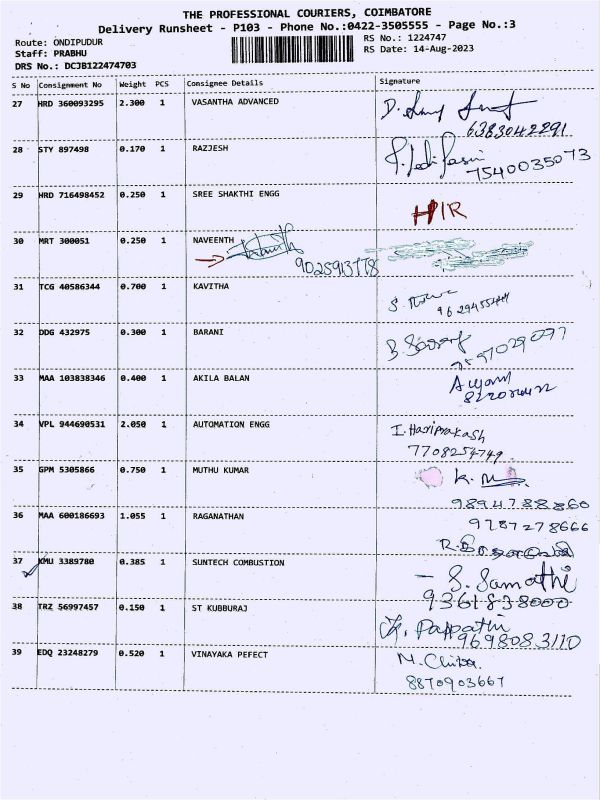 THE PROFESSIONAL COURIERS, COIMBATORE
Delivery Runsheet - P103 - Phone No.:0422-3505555 - Page No.:3
Route: ONDIPUDUR
RS No.: 1224747
Staff: PRABHU
RS Date: 14-Aug-2023
DRS No.: DCJB122474703
S No Consignment No Weight PCS Consignee Details Signature
27 HRD 360093295 2.300 1 VASANTHA ADVANCED
6383042291
28 STY 897498 0.170 1 RAZJESH
7540035073
29 HRD 716498452 0.250 1 SREE SHAKTHI ENGG
30 MRT 300051 0.250 1 NAVEENTH
9025913778
31 TCG 40586344 0.700 1 KAVITHA
32 DDG 432975 0.300 1 BARANI
33 MAA 103838346 0.400 1 AKILA BALAN
34 VPL 944690531 2.050 1 AUTOMATION ENGG
I. Hariprakash
7708254749
35 GPM 5305866 0.750 1 MUTHU KUMAR
9894788860
36 MAA 600186693 1.055 1 RAGANATHAN
9787278666
37 KMU 3389780 0.385 1 SUNTECH COMBUSTION
S. Samathi
9361838000
38 TRZ 56997457 0.150 1 ST KUBBURAJ
K. Pappathi
9698083110
39 EDQ 23248279 0.520 1 VINAYAKA PEFECT
8870903667